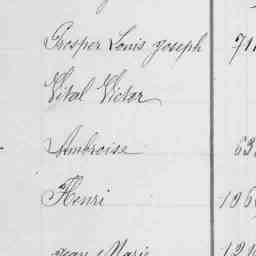 Prosper Louis Joseph 71
Vital Victor
Ambroise 63
Henri 106
Jean Marie 121